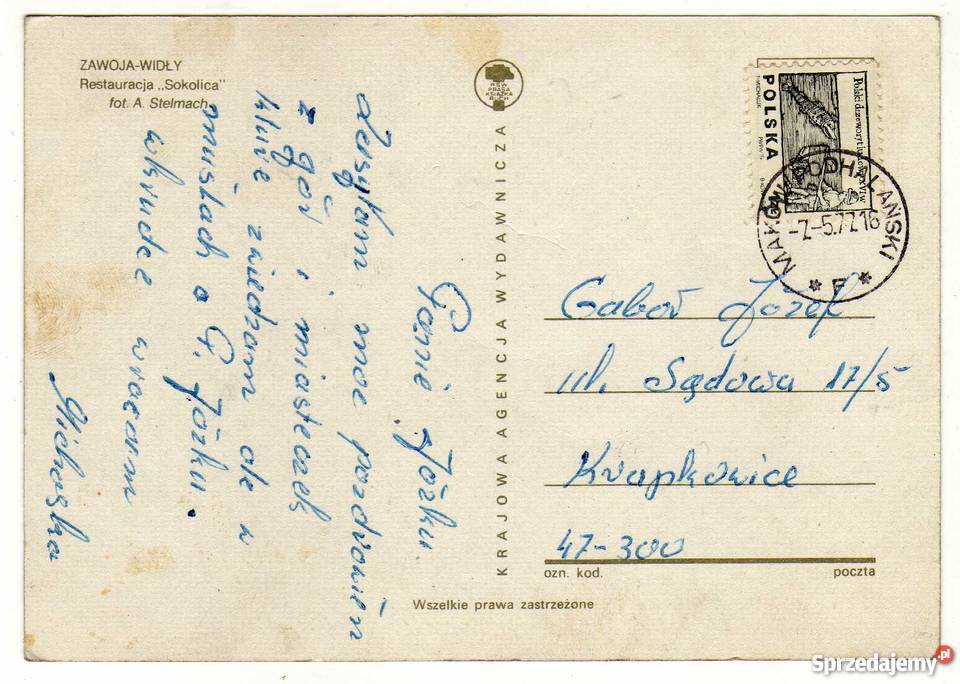 ZAWOJA-WIDŁY
Restauracja „Sokolica”
fot. A. Stelmach
Panie Józku.
Zesyłam moc pozdrowień
z gór i miasteczek
które zwiedzam ale w
myślach o P. Józku.
wkrudce wracam
RSW
PRASA
KSIĄŻKA
RUCH
KRAJOWA AGENCJA WYDAWNICZA
POLSKA
Polski drzeworyt ludowy XVI w
MAKÓW PODHALAŃSKI
-7-5.77.16
* F *
Gaboń Józef
ul. Sądowa 17/5
Krapkowice
47-300
ozn. kod. poczta
Wszelkie prawa zastrzeżone
Sprzedajemy.pl